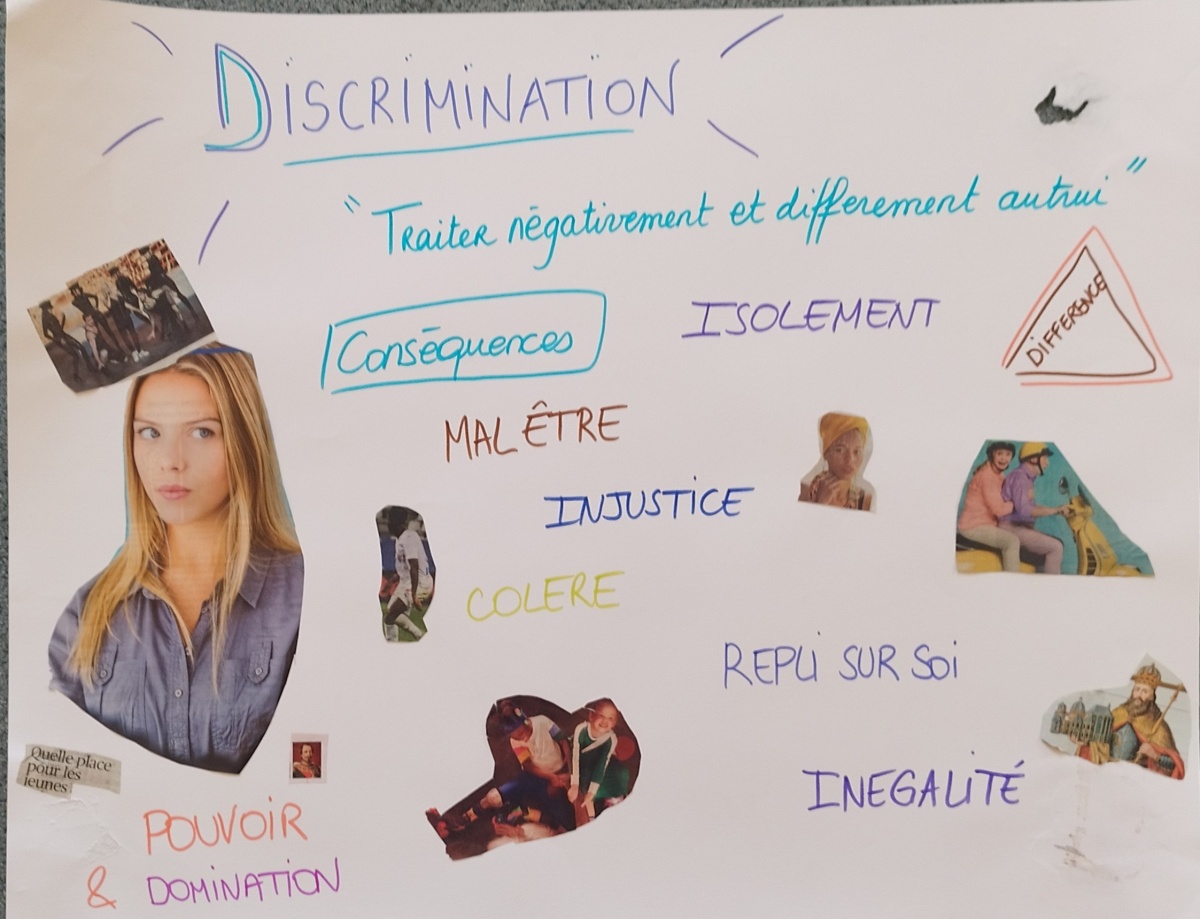 DISCRIMINATION
"Traiter négativement et differement autrui"
Conséquences
ISOLEMENT
DIFFERENCE
MAL ÊTRE
INJUSTICE
COLERE
REPLI SUR SOI
Quelle place
pour les
jeunes
INEGALITÉ
POUVOIR
& DOMINATION